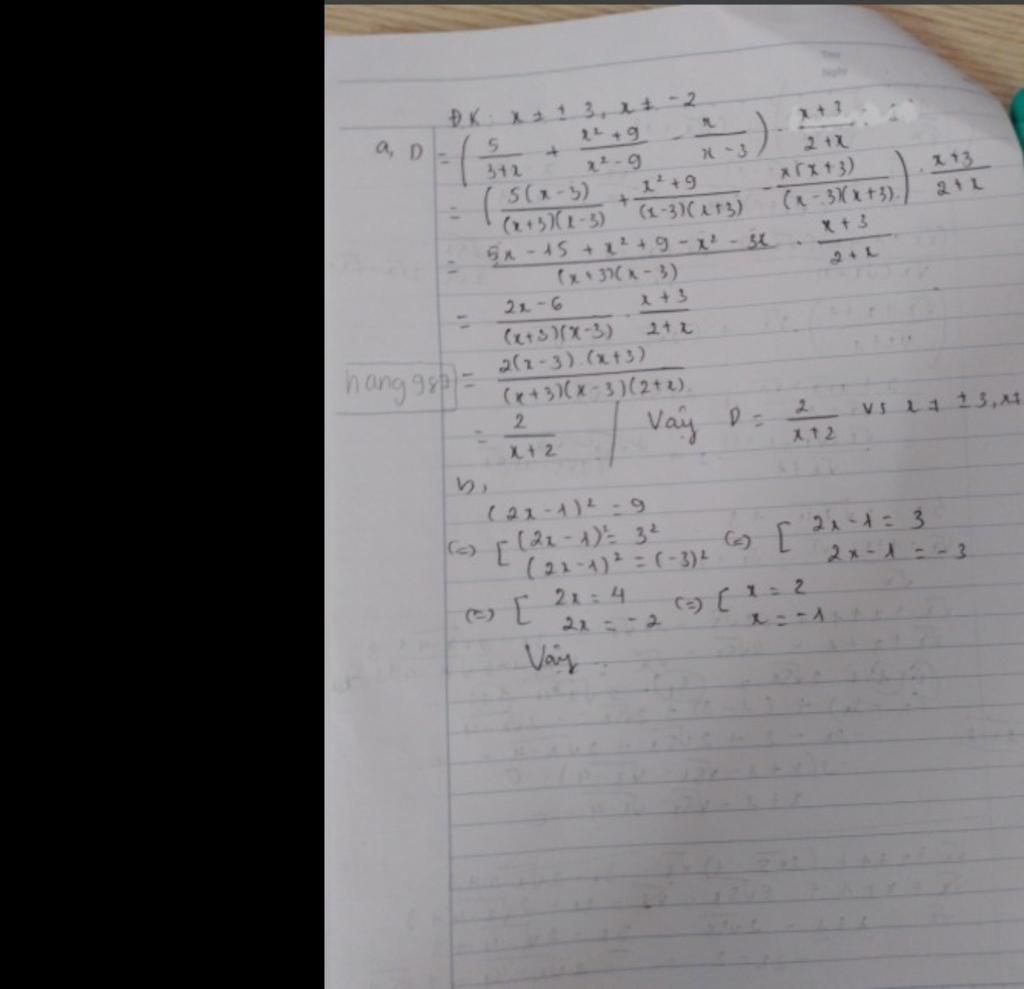 Thứ
Ngày
ĐK: x ≠ ± 3, x ≠ -2
a, D = ( 5/(3+x) + (x² + 9)/(x² - 9) - x/(x - 3) ) · (x + 3)/(2 + x)
= ( 5(x - 3)/((x+3)(x-3)) + (x² + 9)/((x-3)(x+3)) - x(x+3)/((x-3)(x+3)) ) · (x+3)/(2+x)
= (5x - 15 + x² + 9 - x² - 3x)/((x+3)(x-3)) · (x+3)/(2+x)
= (2x - 6)/((x+3)(x-3)) · (x+3)/(2+x)
= 2(x-3).(x+3)/((x+3)(x-3)(2+x))
= 2/(x+2) | Vậy D = 2/(x+2) vs x ≠ ± 3, x ≠
b,
(2x - 1)² = 9
(=) [ (2x - 1)² = 3² ; (2x - 1)² = (-3)² (=) [ 2x - 1 = 3 ; 2x - 1 = -3
(=) [ 2x = 4 ; 2x = -2 (=) [ x = 2 ; x = -1
Vậy